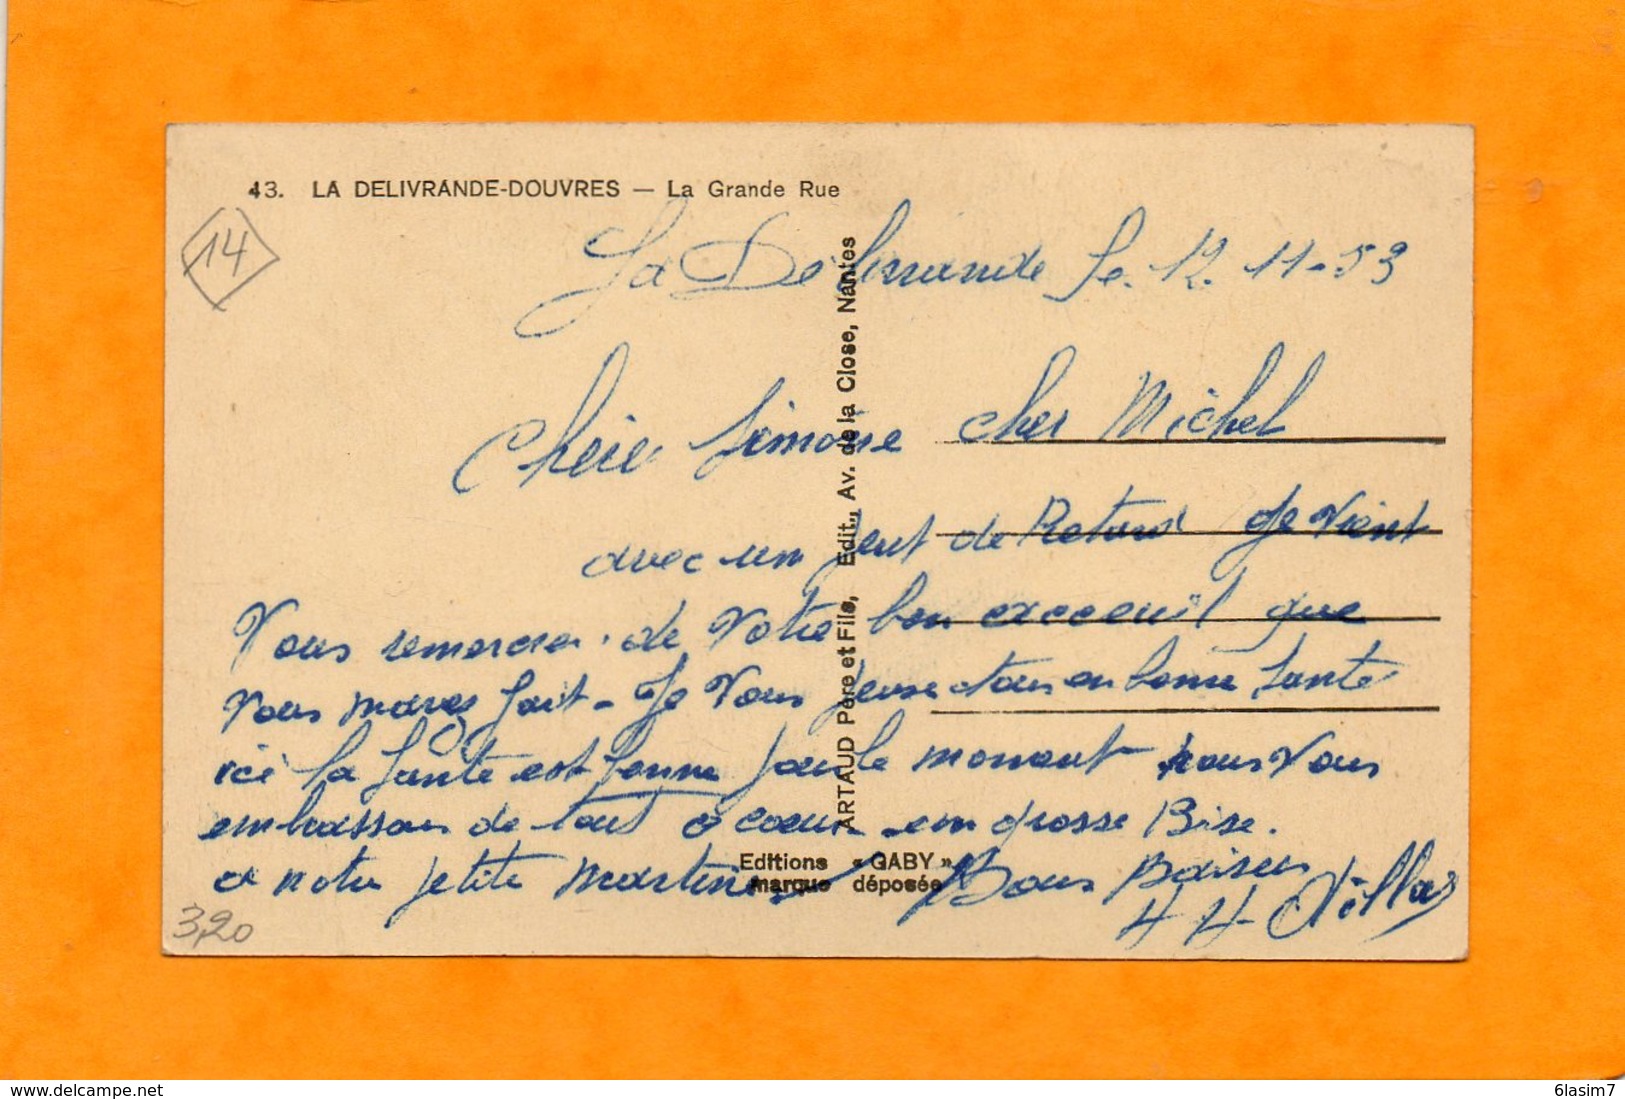 43. LA DELIVRANDE-DOUVRES — La Grande Rue
14
La Delivrande le. 12. 11-53
Chère Simone cher Michel
avec un peut de Retard Je Vient
Vous remercier de Votre bon acceuil que
Vous maves fait - Je Vous pense tous en bonne Sante
ici la Santé est bonne pour le moment nous Vous
embrassons de tout coeur en grosse Bise.
a notre petite Martine Bons Baisers
3,20
ARTAUD Père et Fils, Edit., Av. de la Close, Nantes
Editions « GABY »
marque déposée
www.delcampe.net
6lasim7